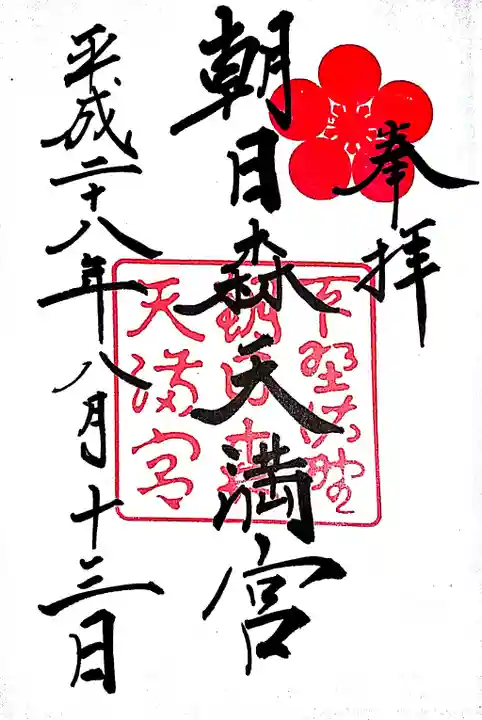 奉拝
朝日森天満宮
平成二十八年八月十三日
下野佐野
朝日森
天満宮